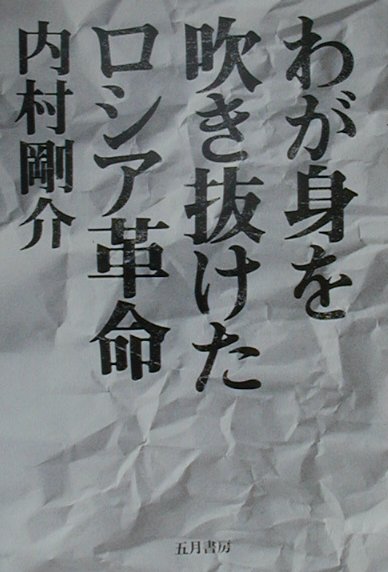 わが身を
吹き抜けた
ロシア革命
内村剛介
五月書房